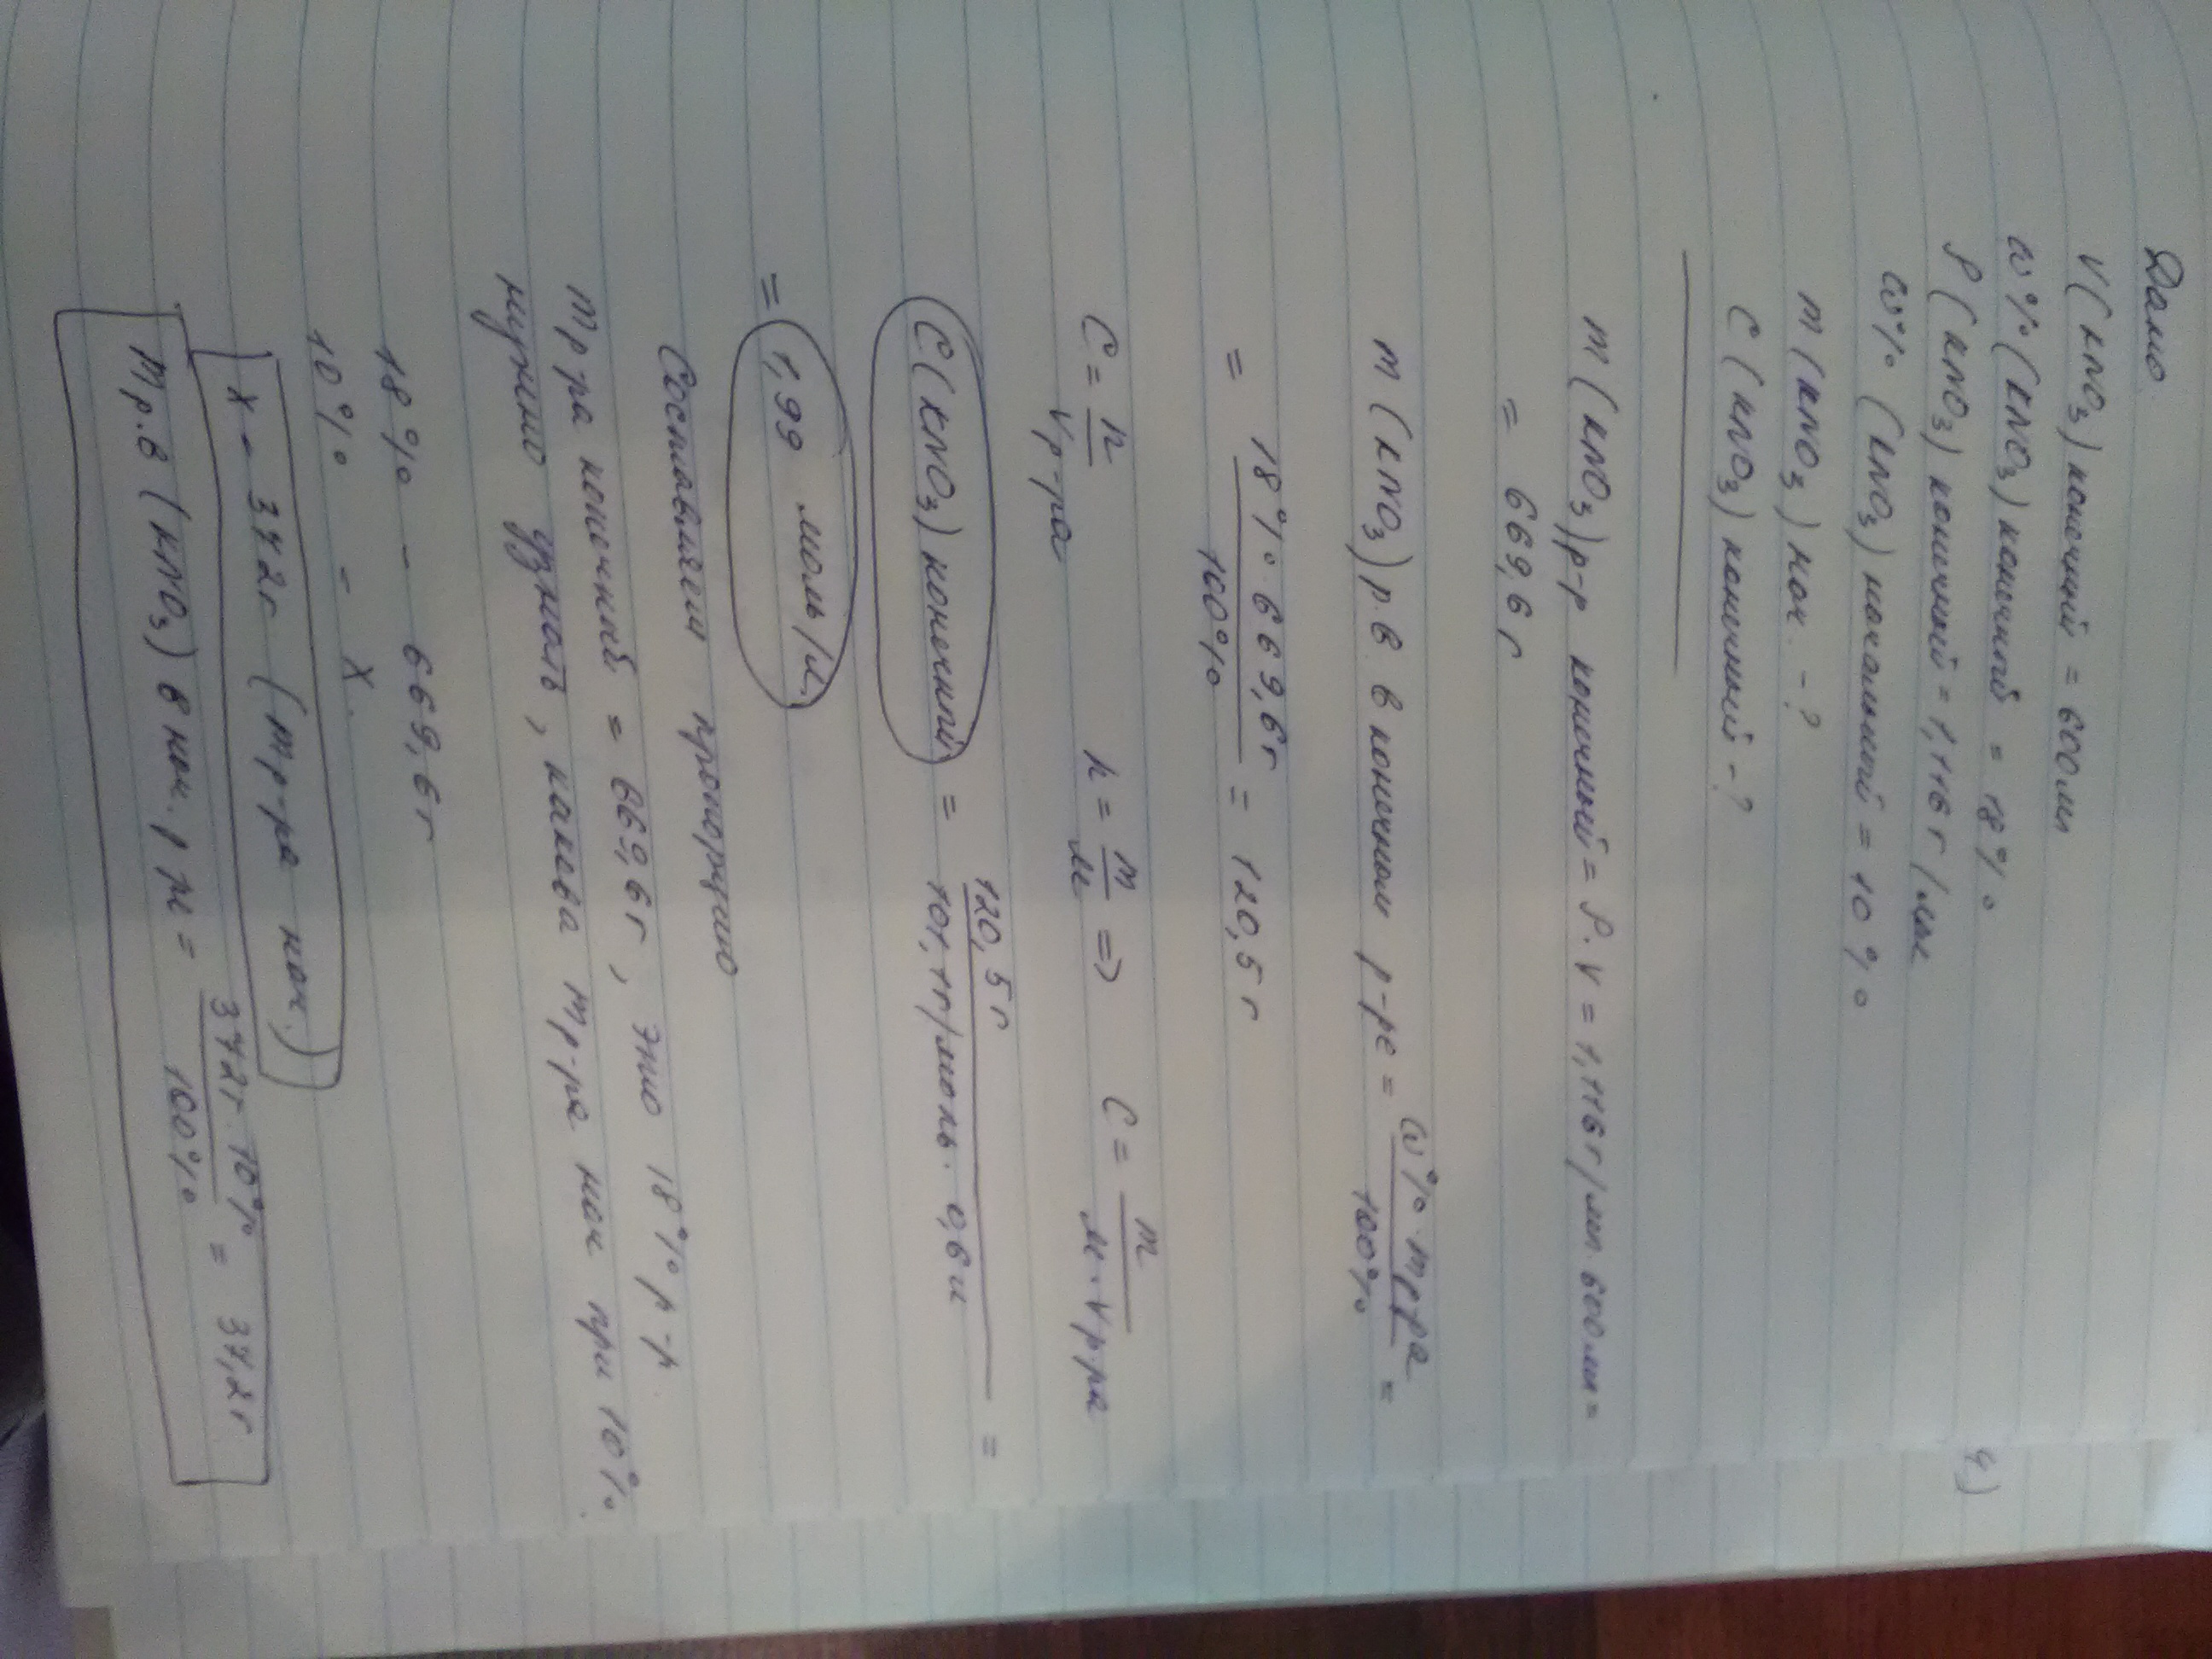 Дано.
V(KNO3) конечный = 600мл
ω%(KNO3) конечный = 18%
ρ(KNO3) конечный = 1,1161 г/мл
ω% (KNO3) начальный = 10%
m(KNO3) нач. - ?
C(KNO3) конечный - ?
4)
m(KNO3)р-р конечный = ρ·V = 1,116г/мл·600мл=
= 669,6г
m(KNO3)р.в. в конечном р-ре = ω%·mр-ра / 100% =
= 18%·669,6г / 100% = 120,5г
C = n / Vр-ра n = m / M => C = m / M·Vр-ра
C(KNO3)конечный = 120,5г / 101,1г/моль·0,6л =
= 1,99 моль/л
Составляем пропорцию
mр-ра конечный = 669,6г, это 18% р-р.
нужно узнать, какова mр-ра нач при 10%.
18% - 669,6г
10% - x.
x - 372г (mр-ра нач.)
mр.в (KNO3) в нач. р-ре = 372г·10% / 100% = 37,2г